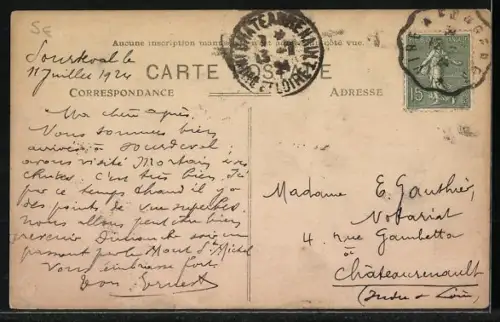 5€
Aucune inscription côté vue.
CARTE POSTALE
CORRESPONDANCE
ADRESSE
Sourdeval le
11 Juillet 1924
Ma chère
Nous sommes bien
arrivés à Sourdeval,
avons visité Mortain ses
chutes. C'est très bien.
par ce temps chaud il y a
des points de vue superbes.
nous allons peut être bien
revenir Dimanche soir en
passant par le Mont St Michel
Nous embrasse fort
Ton Ernest
Madame E. Gauthier,
Notariat
4 rue Gambetta
à
Châteaurenault
(Indre & Loire)
CHATEAURENAULT
INDRE ET LOIRE
15